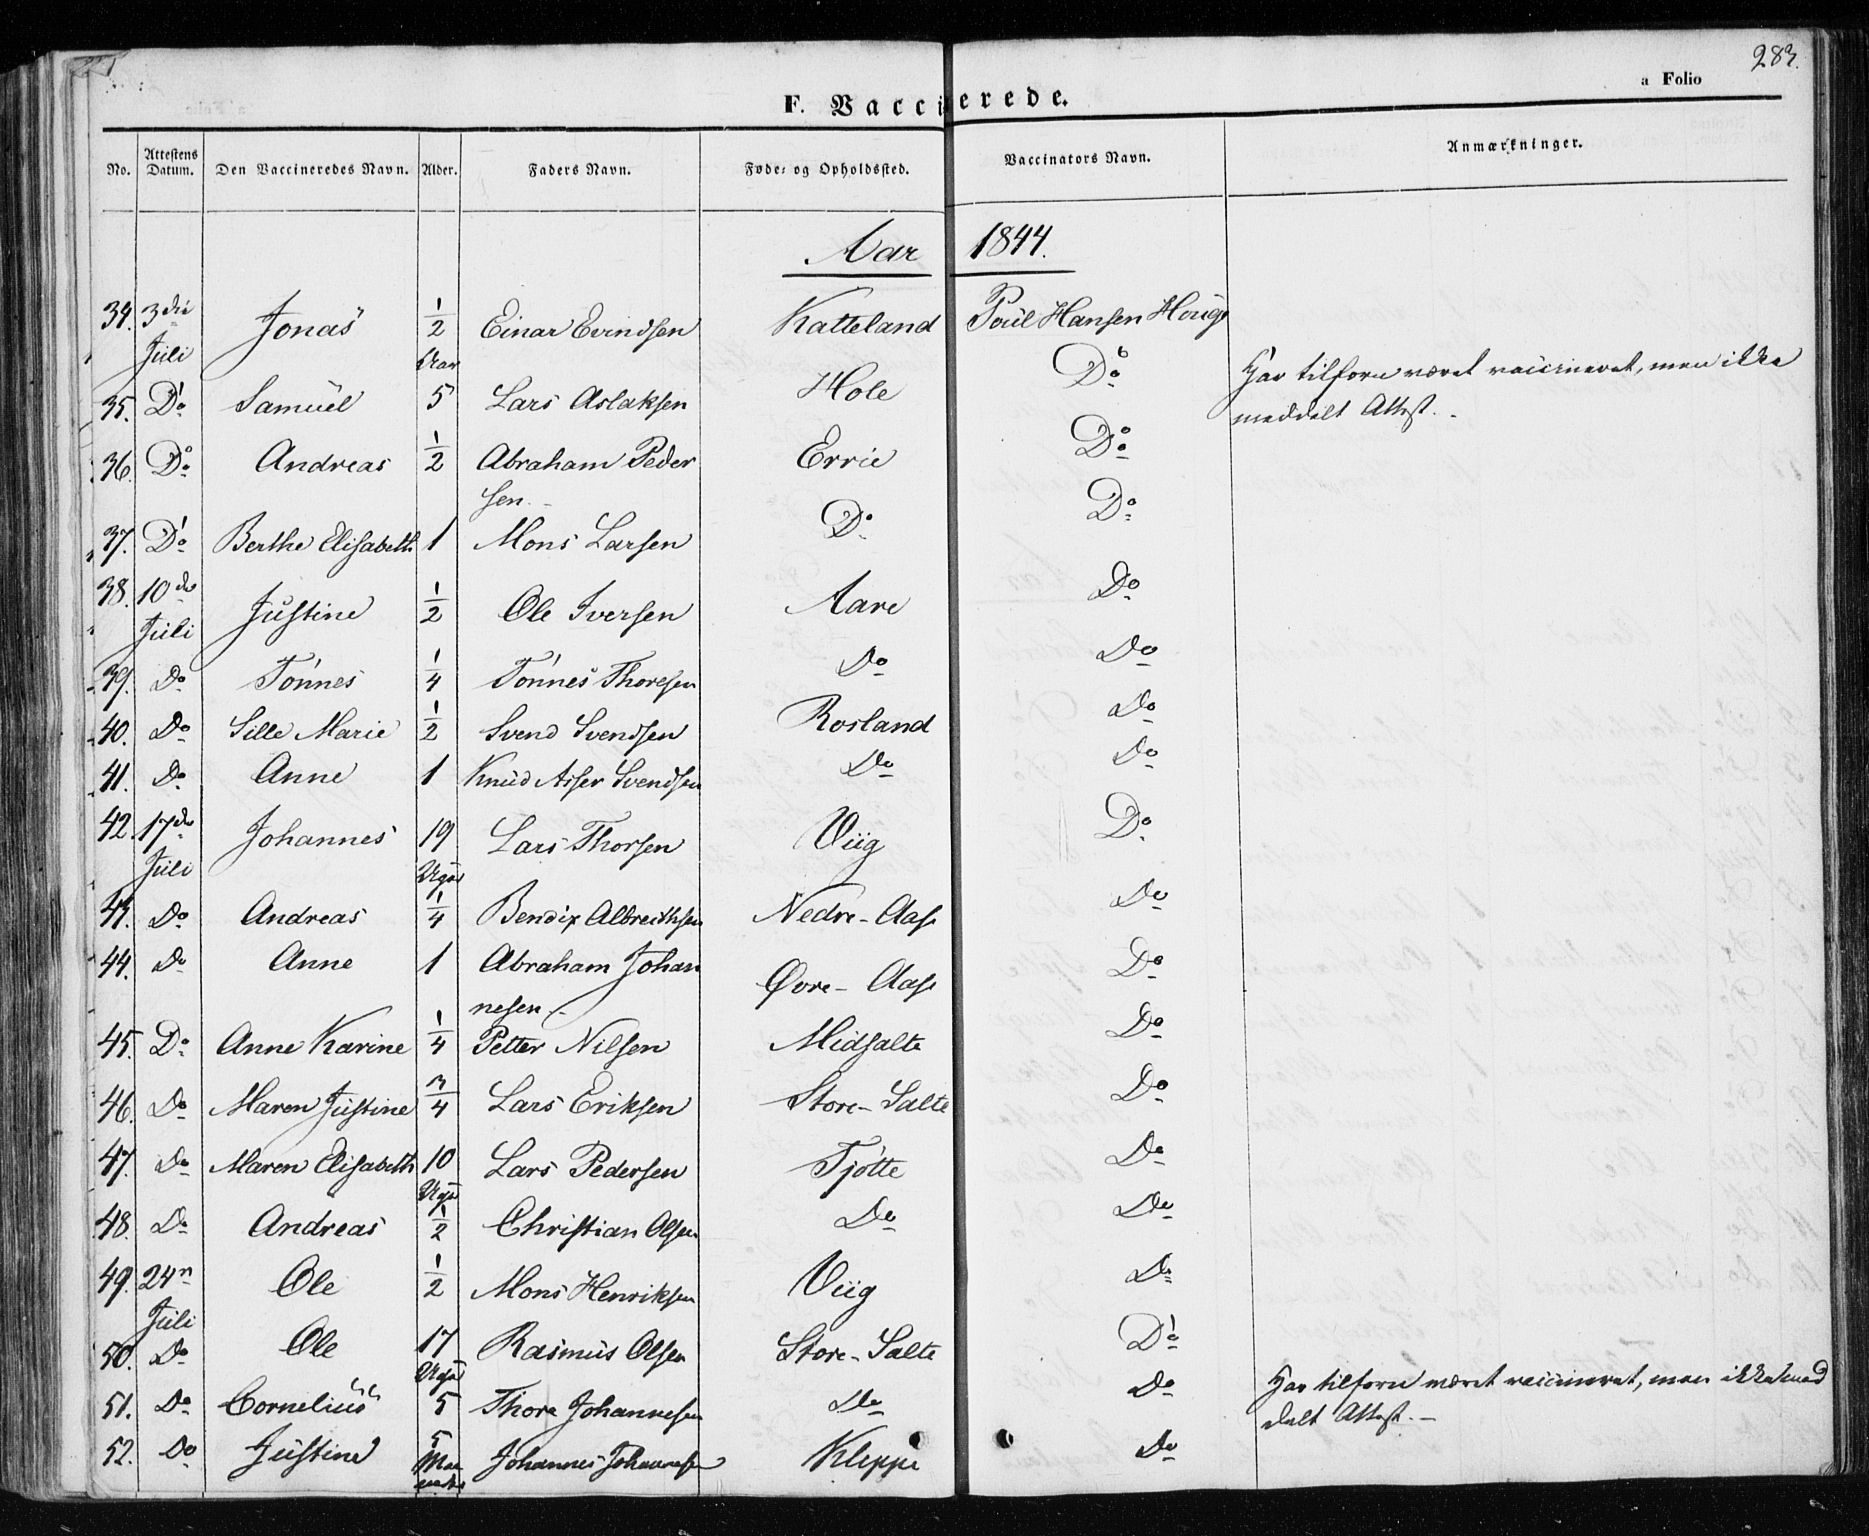 283.
a Folio
F. Vaccinerede.
No. Attestens Datum. Den Vaccineredes Navn. Alder. Faders Navn. Føde- og Opholdssted. Vaccinators Navn. Anmærkninger.
Aar 1844.
34. 3die Juli Jonas 1/2 Aar Einar Evindsen Katteland Poul Hansen Houge
35. Do Samuel 5 Lars Aslaksen Hole Do Har tilforn været vaccineret, men ikke
meddelt Attest.
36. Do Andreas 1/2 Abraham Peder Errie Do
sen.
37. Do Berthe Elisabeth 1 Mons Larsen Do Do
38. 10de Juli Justine 1/2 Ole Iversen Aare Do
39. Do Tönnes 1/4 Tönnes Thoresen Do Do
40. Do Sille Marie 1/2 Svend Svendsen Rosland Do
41. Do Anne 1 Knud Svendsen Do Do
42. 17de Juli Johannes 19 Uger Lars Thorsen Viig Do
43. Do Andreas 1/4 Bendix Albrecthsen Nedre-Aase Do
44. Do Anne 1 Abraham Johan Øvre-Aase Do
nesen.
45. Do Anne Karine 1/4 Petter Nilsen Midsalte Do
46. Do Maren Justine 3/4 Lars Eriksen Store-Salte Do
47. Do Maren Elisabeth 10 Uger Lars Pedersen Tjötte Do
48. Do Andreas 1/2 Christian Olsen Do Do
49. 24n Juli Ole 1/2 Mons Henriksen Viig Do
50. Do Ole 17 Uger Rasmus Olsen Store-Salte Do
51. Do Cornelius 5 Thore Johannesen Do Do Har tilforn været vaccineret, men ikke med
delt Attest.
52. Do Justine 5 Maaneder Johannes Johannesen Kleppe Do